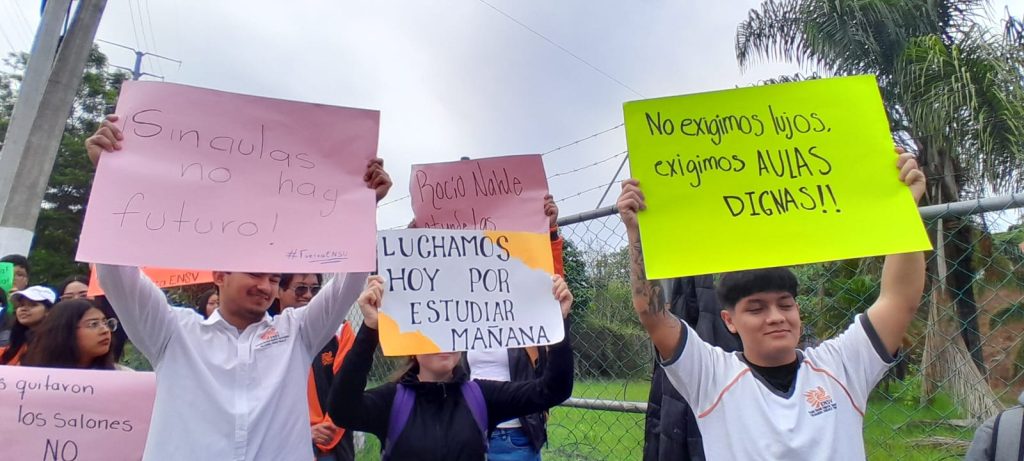 ¡Sin aulas
no hay
futuro!
#FuerzaENSV
Rocío Nahle
LUCHAMOS
HOY POR
ESTUDIAR
MAÑANA
No exigimos lujos,
exigimos AULAS
DIGNAS!!
quitaron
los salones
NO
ENSV
ENSV